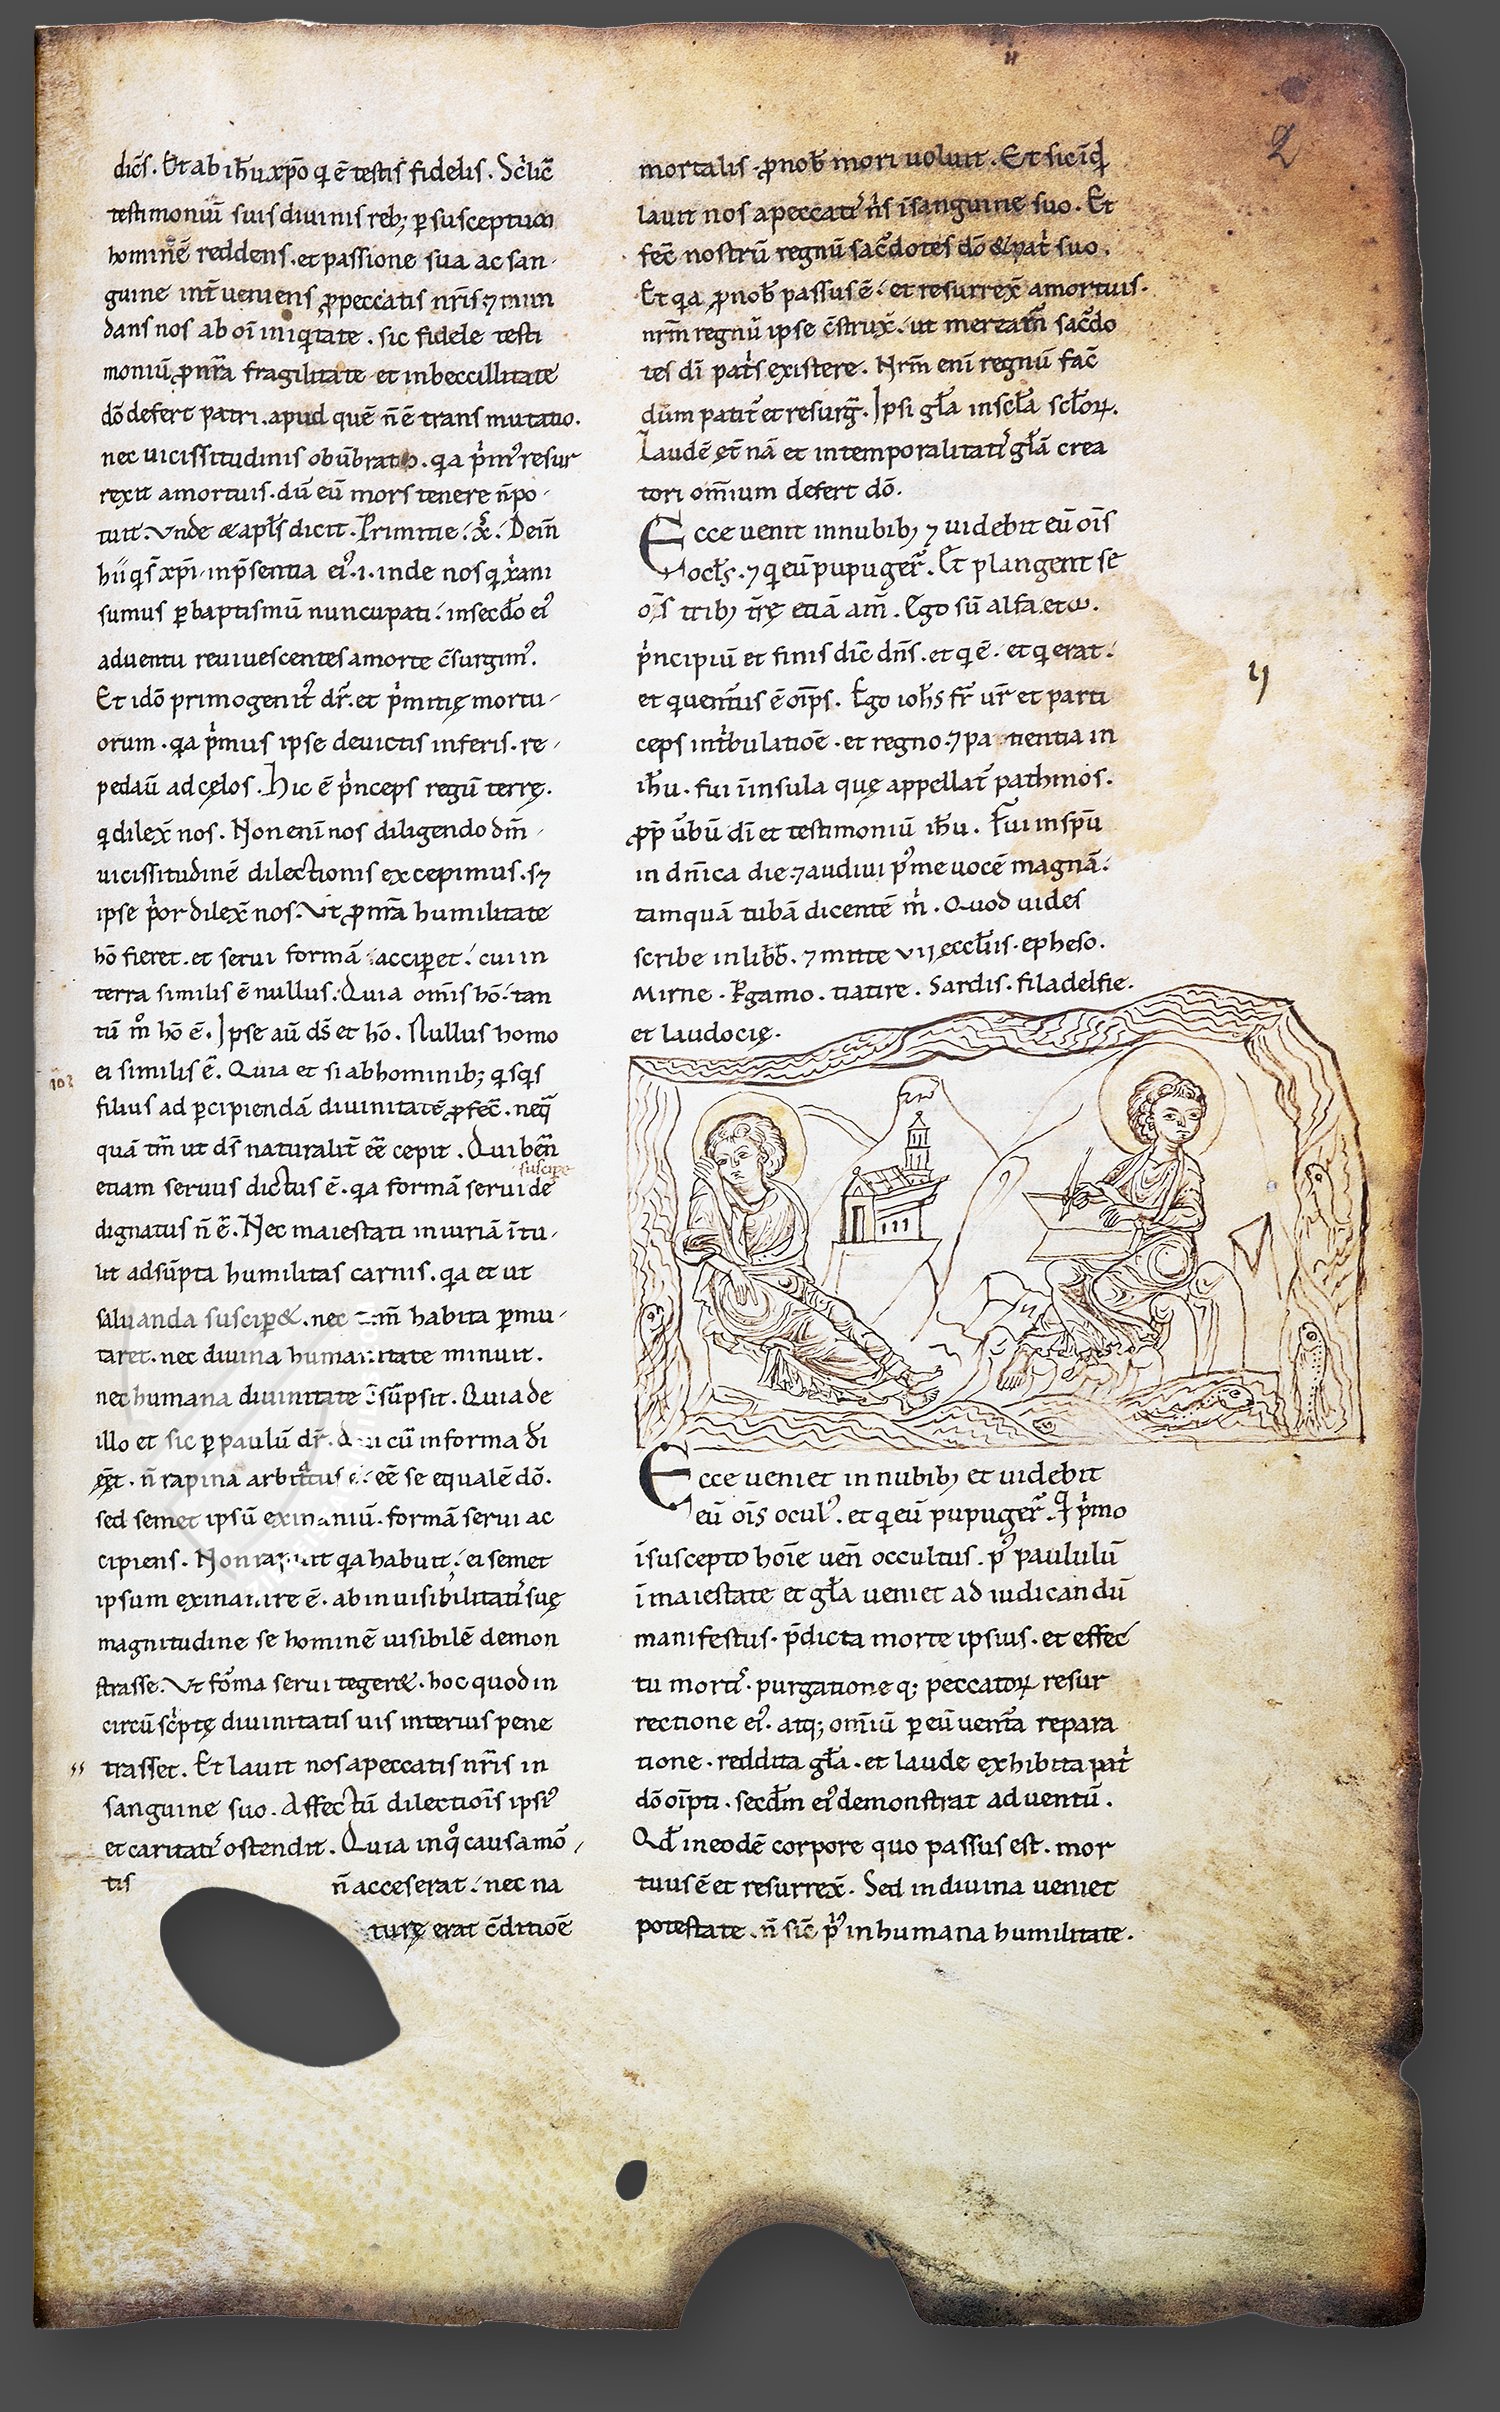 2
dic̄s. Et ab ih̄u xp̄o q ē testis fidelis. Sc̓lic̄
testimoniū suis diuinis reb; ꝑ susceptum
hominē reddens. et passione sua ac san-
guine int̄ueniens ꝓ peccatis nr̄is ⁊ mun
dans nos ab oī iniq̓tate. sic fidele testi
moniū ꝓ nr̄a fragilitate et inbeccillitate
dō defert patri. apud quē n̄ ē transmutatio.
nec uicissitudinis obūbratio. q̓a p̓m᾽ resur
rexit a mortuis. dū eū mors tenere n̄ po-
tuit. Vnde & apl̄s dicit. Primitie. x̄. Dein̄
hii q̄ s̄ xp̄i. in p̄sentia ei᾽. i. inde nos q xr̄ani
sumus ꝑ baptismū nuncupati. in secd̄o ei᾽
aduentu reuiuescentes a morte c̄surgim᾽.
Et idō primogenit᾽ dr̄. et p̓mitię mortu-
orum. q̓a p̓mus ipse deuictis inferis. re-
pedau̅ ad cęlos. Hic ē p̓nceps regū terrę.
q dilex̄ nos. Non eni̅ nos diligendo dm̄
uicissitudinē dilectionis excepimus. s⁊
ipse p̓or dilex̄ nos. Vt ꝓ nr̄a humilitate
hō fieret. et serui formā acciꝑet. cui in
terra similis ē nullus. Quia om̄is hō. tan
tū m̊ hō ē. Ipse au̅ ds̄ et hō. Nullus homo
ei similis ē. Quia et si ab hominib; q̓sq̓s
filius ad ꝑcipiendā diuinitatē ꝓfec̄. neq̄
quā tm̄ ut ds̄ naturalit̄ eē cepit. Qui ben̄
suscipe
etiam seruus dictus ē. q̓a formā serui de
dignatus n̄ ē. Nec maiestati iniuriā ītu-
lit adsūpta humilitas carnis. q̓a et ut
saluanda susciꝑ&. nec habita ꝑmu-
taret. nec diuina humanitate minuit.
nec humana diuinitate c̄sūpsit. Quia de
illo et sic ꝑ paulū dr̄. Qui cū in forma dī
ēēt. n̄ rapina arbit᷒tus ē. eē se equalē dō.
sed semet ipsū exinaniu̅. formā serui ac
cipiens. Non rapuit q̓a habuit. ei semet
ipsum exinanire ē. ab inuisibilitati᾽ suę
magnitudine se hominē uisibilē demon
strasse. Vt fo᾽ma serui teger&. hoc quod in
circū sc̓ptę diuinitatis uis interius pene
trasset. Et lauit nos a peccatis nr̄is in
sanguine suo. Affectū dilectiōis ipsi᾽
et caritati᾽ ostendit. Quia in q̊ causa mō
tis n̄ acceserat. nec na
turę erat c̄ditiōē
mortalis. ꝓ nob̄ mori uoluit. Et sic īq̓d
lauit nos a peccati᾽ n̄s ī sanguine suo. Et
fec̄ nostrū regnū sac̓dotes dō & pat̓ suo.
Et q̓a ꝓ nob̄ passus ē. et resurrex̄ a mortuis.
nrm̄ regnū ipse c̄strux̄. ut mertam̄ sac̓do
tes dī pat̓s existere. Nrm̄ eni̅ regnū fac̄
dum patit᾽ et resurg̅. Ipsi gl̄a in scl̄a scl̄oꝝ.
Laudē ęt̄nā et intemporalitati᾽ gl̄ā crea
tori omnium defert dō.
Ecce uenit in nubib; ⁊ uidebit eū oīs
ocl̄s. ⁊ q eū pupuger᷒. Et plangent sē
os̄ trib; t̄rę etiā am̄. Ego sū alfa. et ω.
p̓ncipiū et finis dic̄ dn̄s. et q ē. et q erat.
et q uentus ē oīps. Ego ioh̄s fr̄ ur̄ et parti
ceps in t̓bulatiōe. et regno. ⁊ patientia in
ih̄u. fui ī insula quę appellat᾽ pathmos.
ꝓp̄ u̅bū dī et testimoniū ih̄u. Fui in sp̄u
in dn̄ica die. ⁊ audiui p᾽ me uocē magnā.
tamquā tubā dicentē m̓. Quod uides
scribe in lib̄o. ⁊ mitte vij ecclīis. epheso.
Mirne. Ꝑgamo. tiatire. Sardis. filadelfie.
et laudocię.
Ecce ueniet in nubib; et uidebit
eū oīs ocul᾽. et q eū pupuger᷒. Q p̓mo
ī suscepto hoīe uen̄ occultus. p᾽ paululū
ī maiestate et gl̄a ueniet ad iudicandū
manifestus. p̄dicta morte ipsius. et effec
tu morti᾽. purgatione q; peccatoꝝ resur
rectione ei᾽. atq; omīū ꝑ eū uent᷒a repara
tione. reddita gl̄a. et laude exhibita pat̓
dō oīpti. secd̄m ei᾽ demonstrat aduentū.
Qd̄ in eodē corpore quo passus est. mor
tuus ē et resurrex̄. Sed in diuina ueniet
potestate. n̄ sic̄ p᾽ in humana humilitate.